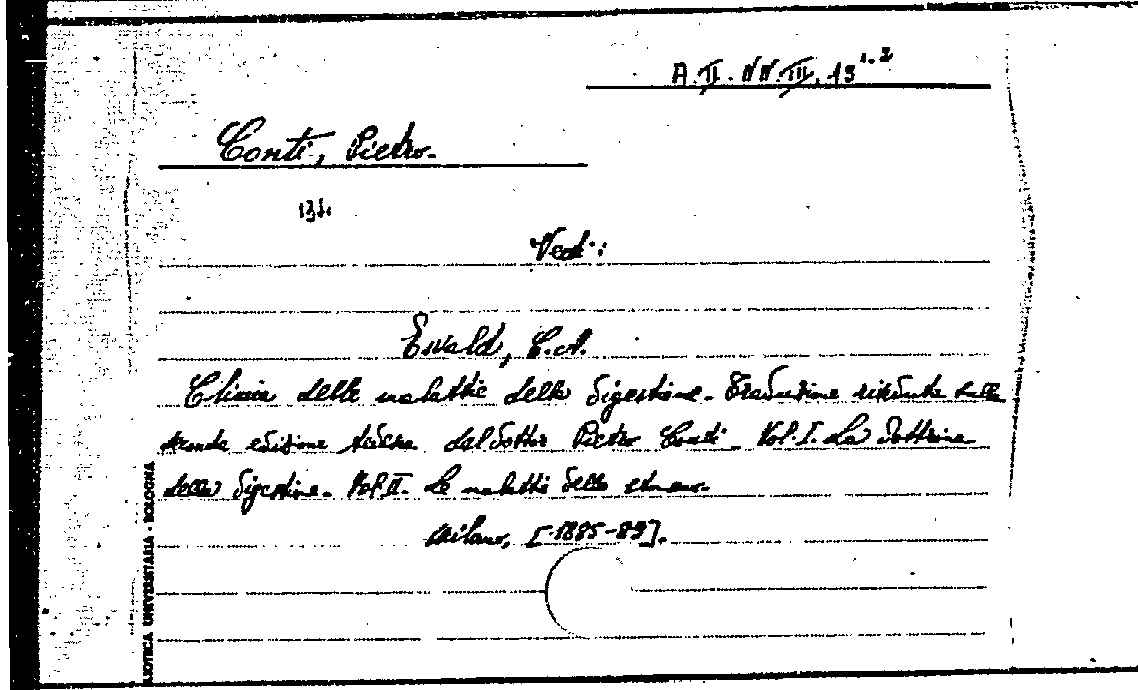 A.II. VV.III. 13 1.2
Conti, Pietro.
Vedi:
Ewald, C.A.
Clinica delle malattie della digestione. Traduzione riveduta sulla
seconda edizione tedesca dal dottor Pietro Conti. Vol. I. La dottrina
della digestione. Vol II. Le malattie dello stomaco.
Milano, [1885-89].
BIBLIOTECA UNIVERSITARIA - BOLOGNA